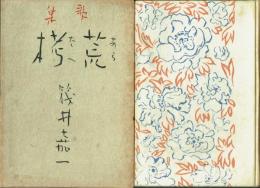 歌集
荒栲
あらたへ
筏井嘉一